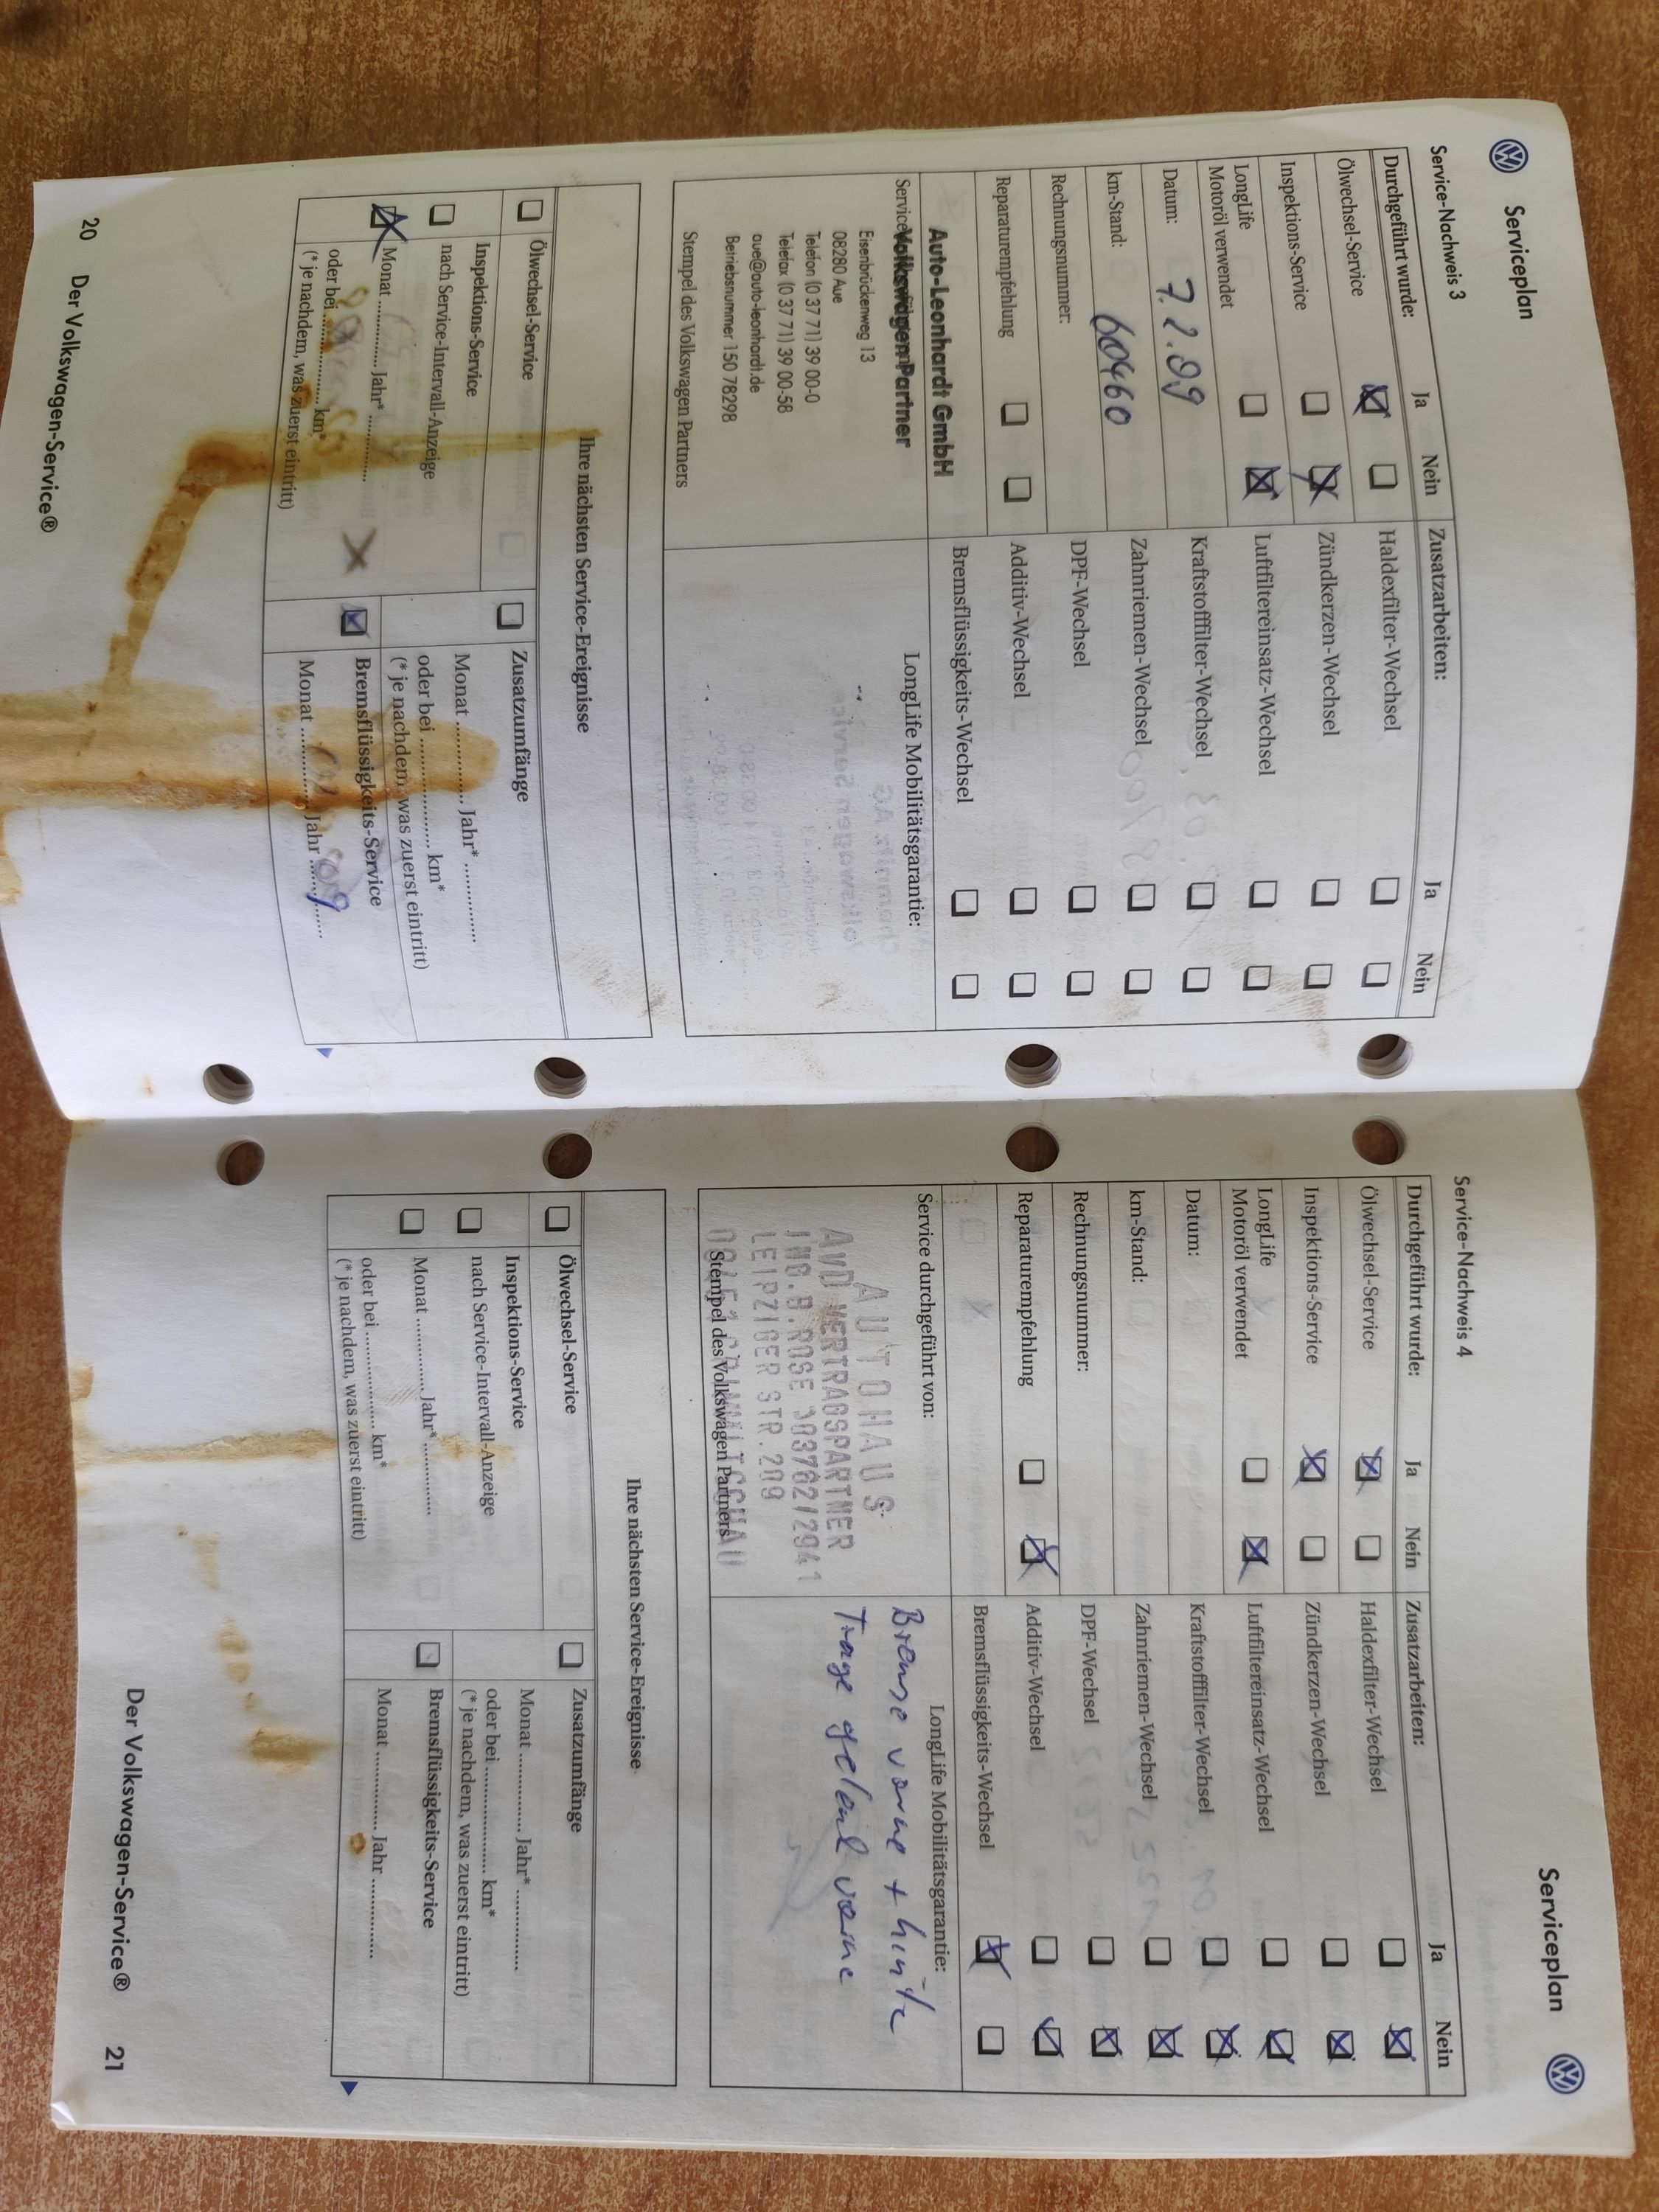 Serviceplan
Service-Nachweis 3
Durchgeführt wurde: Ja Nein
Ölwechsel-Service
Inspektions-Service
LongLife
Motoröl verwendet
Datum: 7.2.09
km-Stand: 60460
Rechnungsnummer:
Reparaturempfehlung
Zusatzarbeiten: Ja Nein
Haldexfilter-Wechsel
Zündkerzen-Wechsel
Luftfiltereinsatz-Wechsel
Kraftstofffilter-Wechsel
Zahnriemen-Wechsel
DPF-Wechsel
Additiv-Wechsel
Bremsflüssigkeits-Wechsel
Auto-Leonhardt GmbH
Volkswagen Partner
Eisenbrückenweg 13
08280 Aue
Telefon (0 37 71) 39 00-0
Telefax (0 37 71) 39 00-58
aue@auto-leonhardt.de
Betriebsnummer 150 78298
Stempel des Volkswagen Partners
LongLife Mobilitätsgarantie:
Ihre nächsten Service-Ereignisse
Ölwechsel-Service
Inspektions-Service
nach Service-Intervall-Anzeige
Monat ............... Jahr* ...............
oder bei ............... km*
(* je nachdem, was zuerst eintritt)
Zusatzumfänge
Monat ............... Jahr* ...............
oder bei ............... km*
(* je nachdem, was zuerst eintritt)
Bremsflüssigkeits-Service
Monat ............... Jahr ...............
20 Der Volkswagen-Service®
Serviceplan
Service-Nachweis 4
Durchgeführt wurde: Ja Nein
Ölwechsel-Service
Inspektions-Service
LongLife
Motoröl verwendet
Datum:
km-Stand:
Rechnungsnummer:
Reparaturempfehlung
Zusatzarbeiten: Ja Nein
Haldexfilter-Wechsel
Zündkerzen-Wechsel
Luftfiltereinsatz-Wechsel
Kraftstofffilter-Wechsel
Zahnriemen-Wechsel
DPF-Wechsel
Additiv-Wechsel
Bremsflüssigkeits-Wechsel
Service durchgeführt von:
AUTOHAUS
AVD VERTRAGSPARTNER
ING.B.ROSE 303762/2941
LEIPZIGER STR.209
Stempel des Volkswagen Partners
LongLife Mobilitätsgarantie:
Bremse vorne + hinte
Trage gelenk vorne
Ihre nächsten Service-Ereignisse
Ölwechsel-Service
Inspektions-Service
nach Service-Intervall-Anzeige
Monat ............... Jahr* ...............
oder bei ............... km*
(* je nachdem, was zuerst eintritt)
Zusatzumfänge
Monat ............... Jahr* ...............
oder bei ............... km*
(* je nachdem, was zuerst eintritt)
Bremsflüssigkeits-Service
Monat ............... Jahr ...............
Der Volkswagen-Service® 21